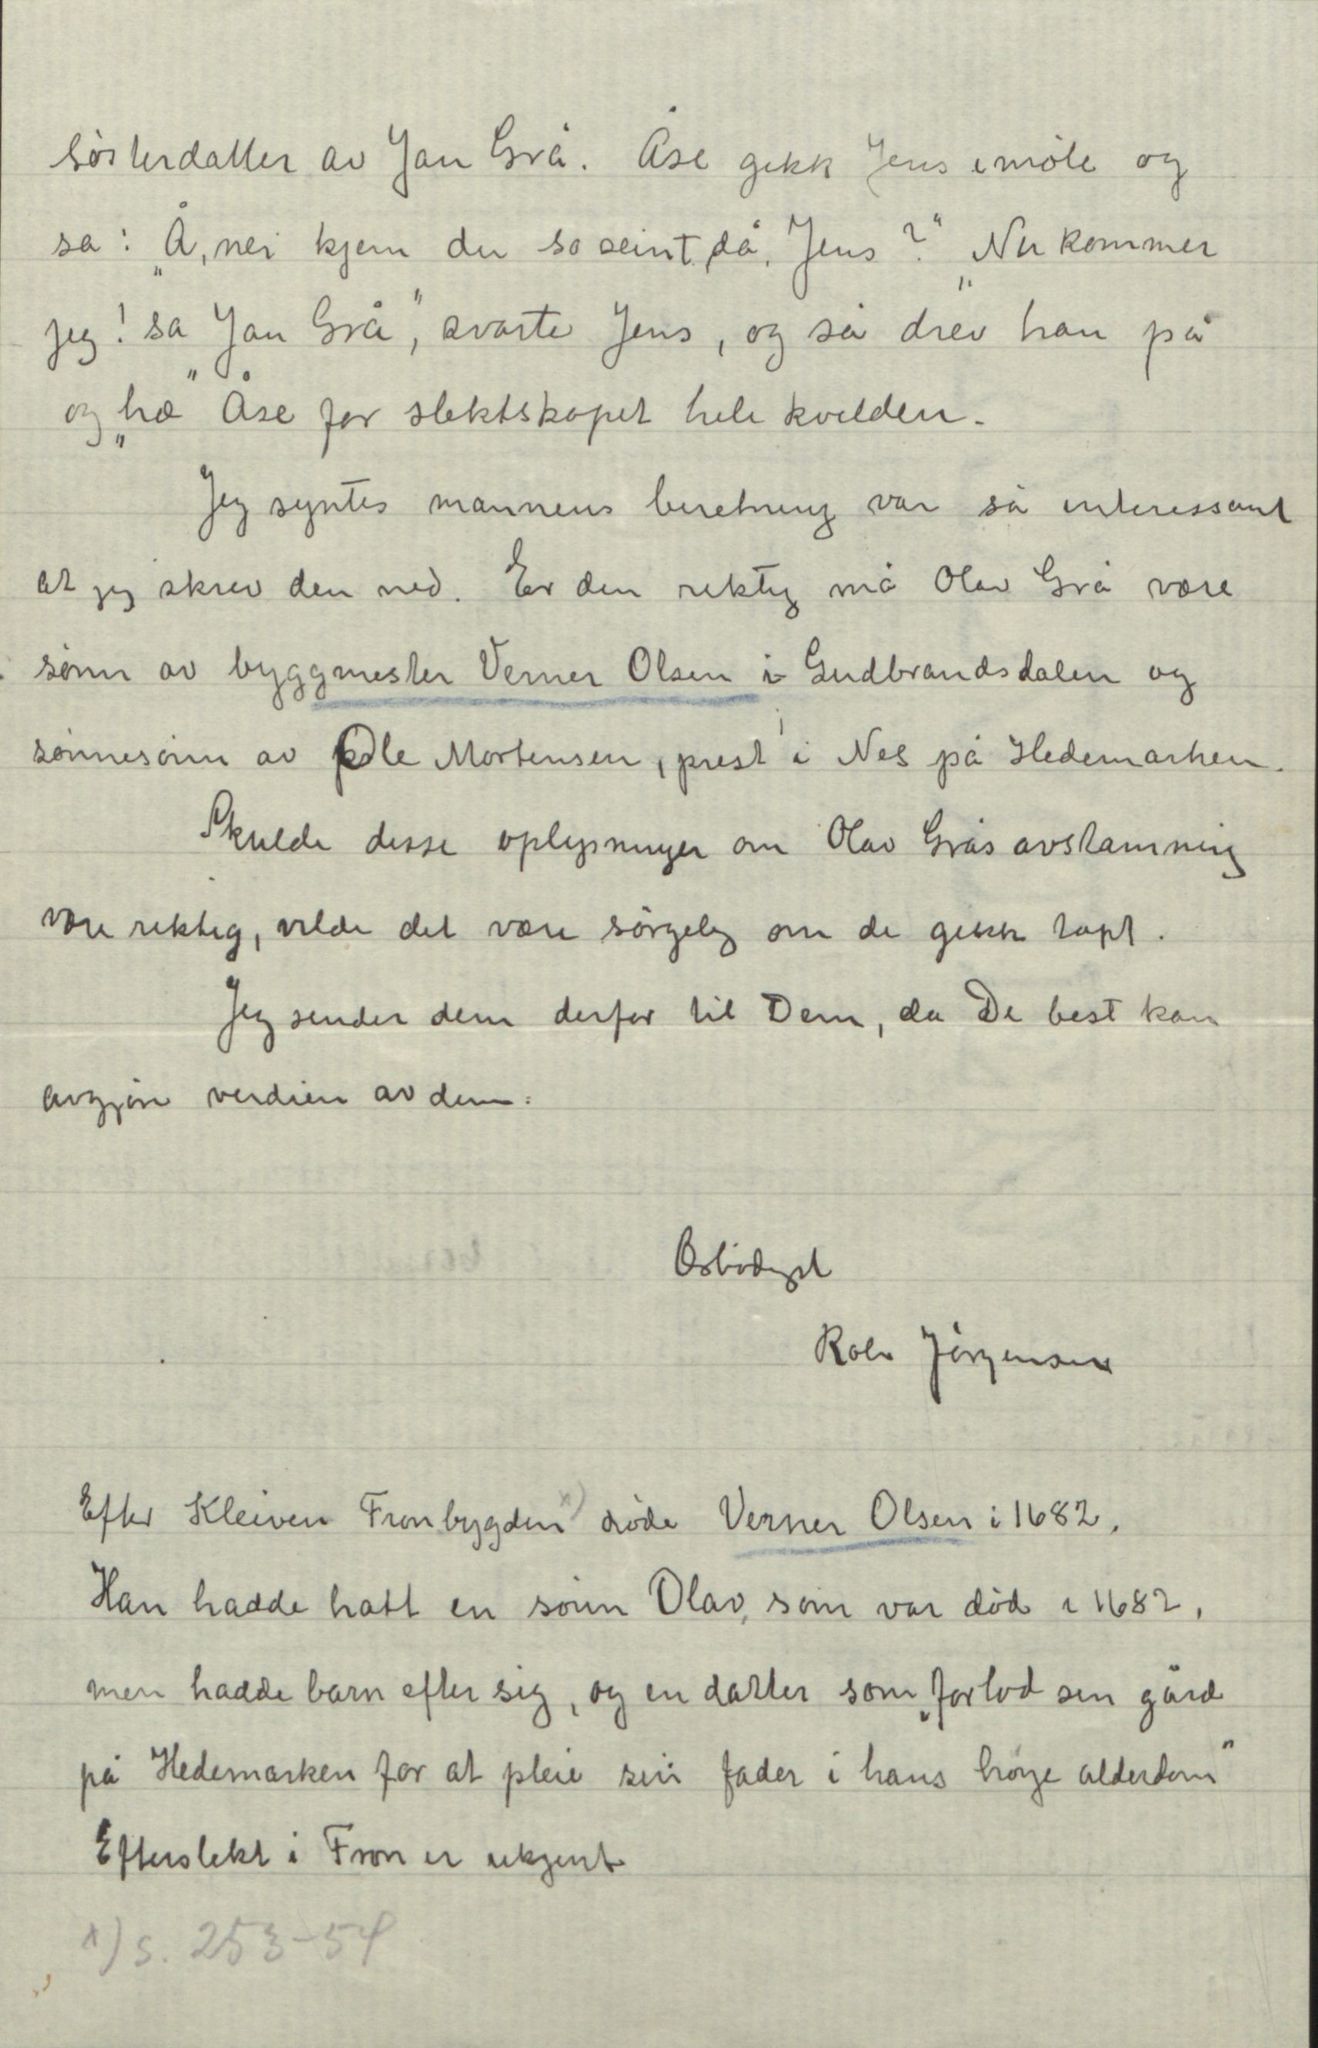 søsterdatter av Jan Grå. Åse gekk Jens imøte og
sa: „Å, nei kjem du so seint då, Jens?" „Nu kommer
jeg! sa Jan Grå", svarte Jens, og så drev han på
og „hæ" Åse for slektskapet hele kvelden.
Jeg syntes mannens beretning var så interessant
at jeg skrev den ned. Er den riktig må Olav Grå være
sønn av byggmester Verner Olsen i Gudbrandsdalen og
sønnesønn av Ole Mortensen, prest i Nes på Hedemarken.
Skulde disse oplysninger om Olav Grås avstamning
være riktig, vilde det være sørgelig om de gikk tapt.
Jeg sender dem derfor til Dem, da De best kan
avgjøre verdien av dem.
Ærbødigst
Rolv Jørgensen
Efter Kleiven Fronbygden x) døde Verner Olsen i 1682.
Han hadde hatt en sønn Olav, som var død i 1682,
men hadde barn efter sig, og en datter som „forlod sin gård
på Hedemarken for at pleie sin fader i hans høye alderdom"
Efterslekt i Fron er ukjent
x) s. 253-54